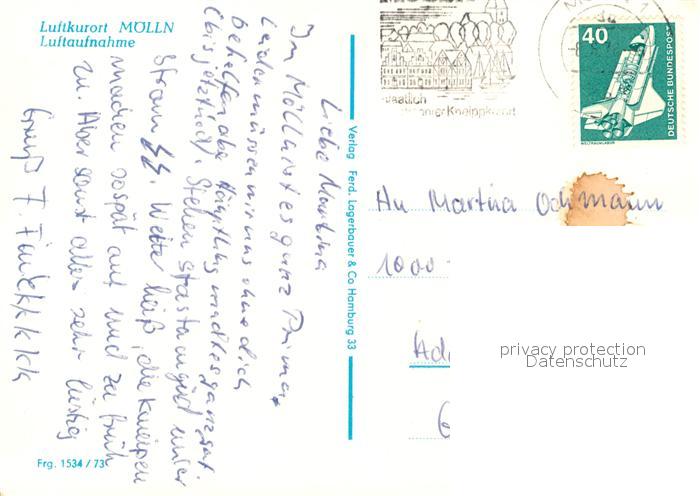 Luftkurort MÖLLN
Luftaufnahme
Liebe Martina
In Mölln ist es ganz Prima
Leider müssen wir uns ohne dich
behelfen aber macht es ganz gut.
(bis jetzt). Stehen
Strom. Wetter heiß, die Kneipen
machen so spät auf und zu früh
zu. Aber sonst alles sehr lustig
Gruß F. Finkkkkkk
Frg. 1534 / 73
Verlag Ferd. Lagerbauer & Co Hamburg 33
staatlich
Kneippkurort
40
DEUTSCHE BUNDESPOST
WELTRAUMLABOR
An Martina Ochmann
1000
privacy protection
Datenschutz